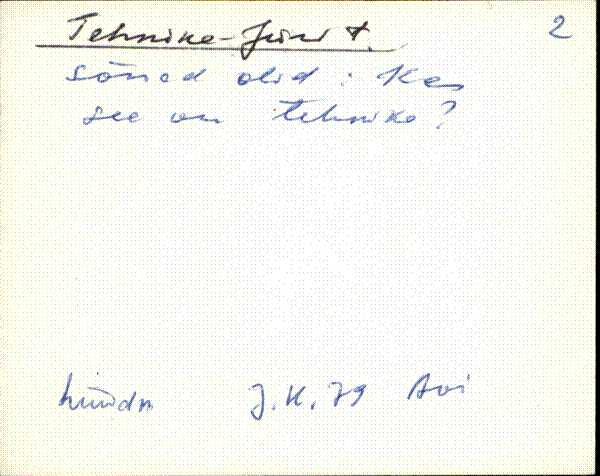 Tehnike-Jüri t. 2
sõned olid: Kas
see on tehnike?
hüüdn J.K. 79 Avi